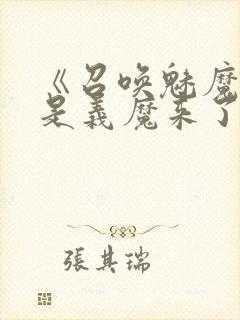 《召喚魅魔
是義魔來了
張其瑞